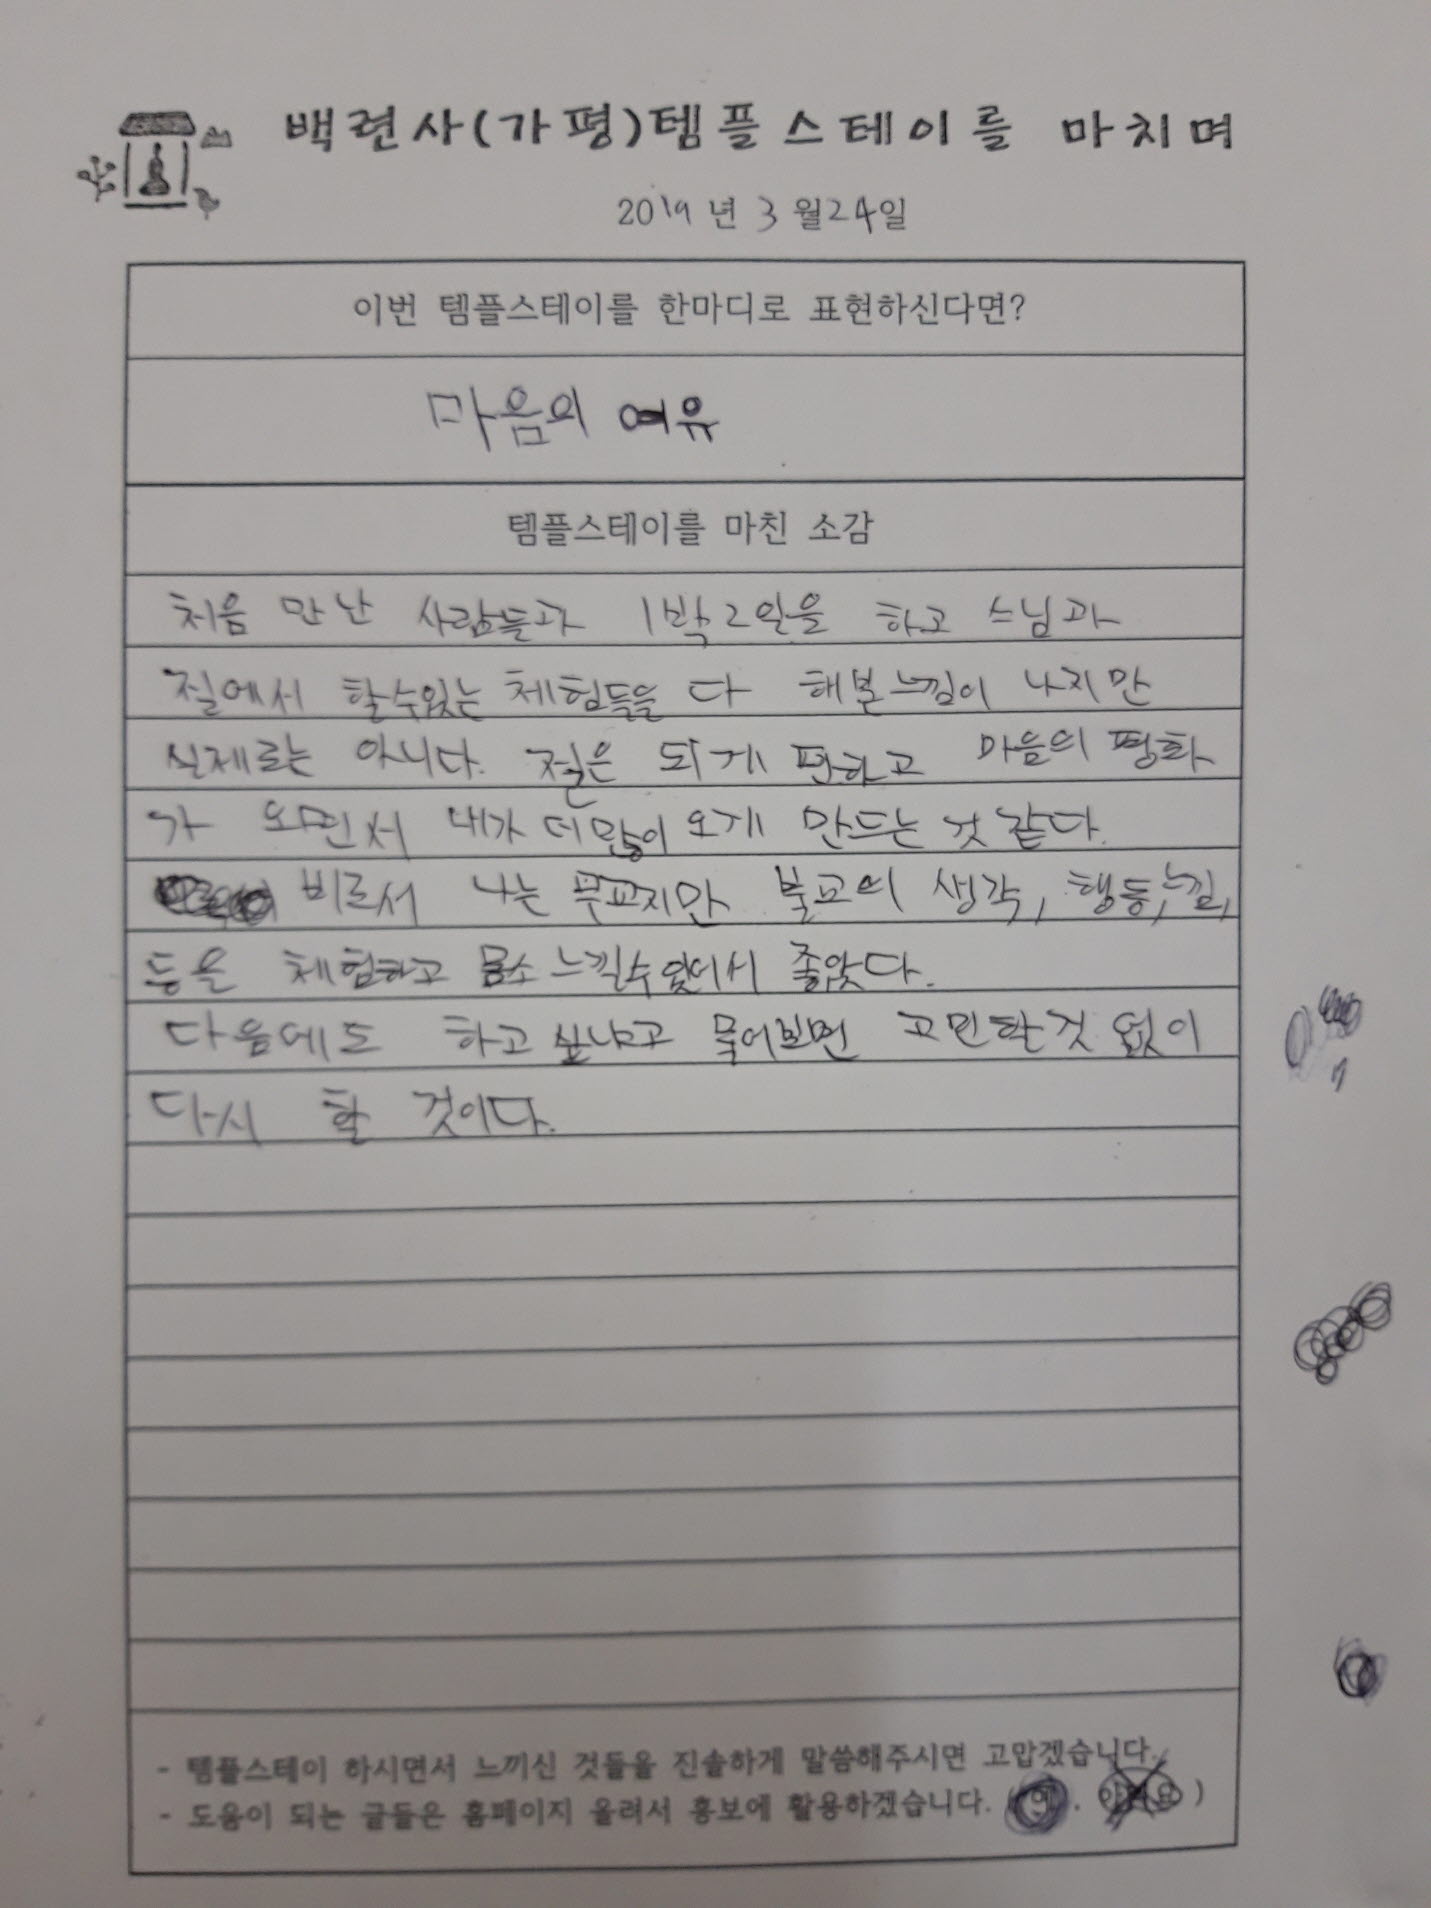 백련사(가평)템플스테이를 마치며
2019년 3월24일
이번 템플스테이를 한마디로 표현하신다면?
마음의 여유
템플스테이를 마친 소감
처음 만난 사람들과 1박2일을 하고 스님과
절에서 할수있는 체험들을 다 해본느낌이 나지만
실제로는 아니다. 절은 되게 편하고 마음의 평화
가 오면서 내가 더많이 오게 만드는 것 같다.
비로서 나는 무교지만 불교의 생각, 행동,느낌,
등을 체험하고 몸소 느낄수있어서 좋았다.
다음에도 하고싶냐고 물어보면 고민할것 없이
다시 할 것이다.
- 템플스테이 하시면서 느끼신 것들을 진솔하게 말씀해주시면 고맙겠습니다.
- 도움이 되는 글들은 홈페이지 올려서 홍보에 활용하겠습니다. (예. 아니요)